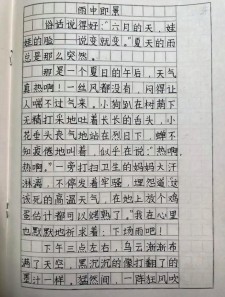 雨中即景
俗话说得好:"六月的天,娃
娃的脸——说变就变。"夏天的雨
总是那么突然。
那是一个夏日的午后,天气
真热啊!一丝风都没有,闷得让
人喘不过气来。小狗趴在树荫下
无精打采地吐着长长的舌头,小
花垂头丧气地站在烈日下,蝉不
知疲倦地叫着,似乎在说:"热啊
热啊。"一旁打扫卫生的妈妈大汗
淋漓,不停发着牢骚,埋怨道这
该死的高温天气,在地上放个鸡
蛋估计都可以烤熟了。"我在心里
也默默地祈求着:下场雨吧!
下午三点左右,乌云渐渐布
满了天空,黑沉沉的像打翻了的
墨汁一样。猛然间,一阵狂风吹